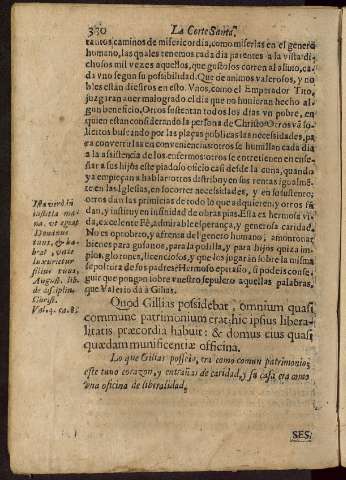 330 La Corte Santa,
tantos caminos de misericordia, como miserias en el genero
humano, las quales tenemos cada dia patentes a la vista: di-
chosos mil vezes aquellos, que gustosos corren al aliuio, ca-
da vno segun su possibilidad. Que de animos valerosos, y no
bles están diestros en esto. Vnos, como el Emperador Tito,
juzgarian auer malogrado el dia que no huuieran hecho al-
gun beneficio. Otros sustentan todos los dias vn pobre, en
quien están considerando la persona de Christo. Otros vã so-
licitos buscando por las plaças publicas las necessidades, pa
ra conuertirlas en conueniencias: otros se humillan cada dia
a la assistencia de los enfermos: otros se entretienen en ense-
ñar a sus hijos este piadoso oficio casi desde la cuna, quando
ya empieçan a hablar: otros distribuyen sus rentas igualmẽ-
te en las Iglesias, en socorrer necessidades, y en su sustento:
otros dan las primicias de todo lo que adquieren: y otros fũ
dan, y instituyen infinidad de obras pias. Essa es hermosa vi-
da, excelente Fè, admirable esperança, y generosa caridad.
No es oprobrio, y afrenta del genero humano, amontonar
bienes para gusanos, para la polilla, y para hijos quiza im-
pios, glotones, licenciosos, y que los jugaràn sobre la misma
sepoltura de sus padres? Hermoso epitafio, si podeis conse-
guir que pongan sobre vuestro sepulcro aquellas palabras,
que Valerio dà a Gilias.
Dominus
tuus, & ha-
luxurietur
filius tuus,
August. lib.
de disciplin.
Christi.
Val. 4. ca. 8.
Quod Gillias possidebat, omnium quasi
commune patrimonium erat: hic ipsius libera-
litatis præcordia habuit: & domus eius quasi
quædam munificentiæ officina.
Lo que Gilias posseìa, era como comun patrimonio;
este tuuo coraçon, y entrañas de caridad, y su casa era como
vna oficina de liberalidad.
SES-